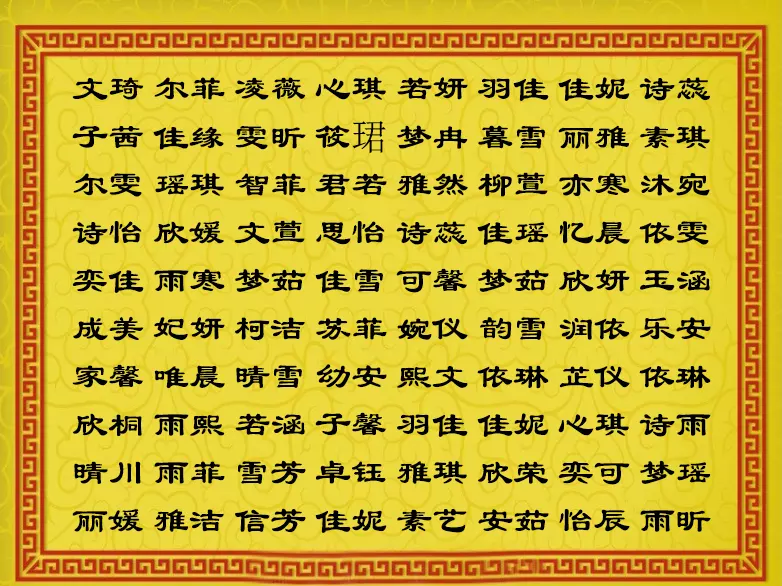 文琦 尔菲 凌薇 心琪 若妍 羽佳 佳妮 诗蕊
子茜 佳缘 雯昕 筱珺 梦冉 暮雪 丽雅 素琪
尔雯 瑶琪 智菲 君若 雅然 柳萱 亦寒 沐宛
诗怡 欣媛 文萱 思怡 诗蕊 佳瑶 忆晨 依雯
奕佳 雨寒 梦茹 佳雪 可馨 梦茹 欣妍 玉涵
成美 妃妍 柯洁 苏菲 婉仪 韵雪 润依 乐安
家馨 唯晨 晴雪 幼安 熙文 依琳 芷仪 依琳
欣桐 雨熙 若涵 子馨 羽佳 佳妮 心琪 诗雨
晴川 雨菲 雪芳 卓钰 雅琪 欣荣 奕可 梦瑶
丽媛 雅洁 信芳 佳妮 素艺 安茹 怡辰 雨昕